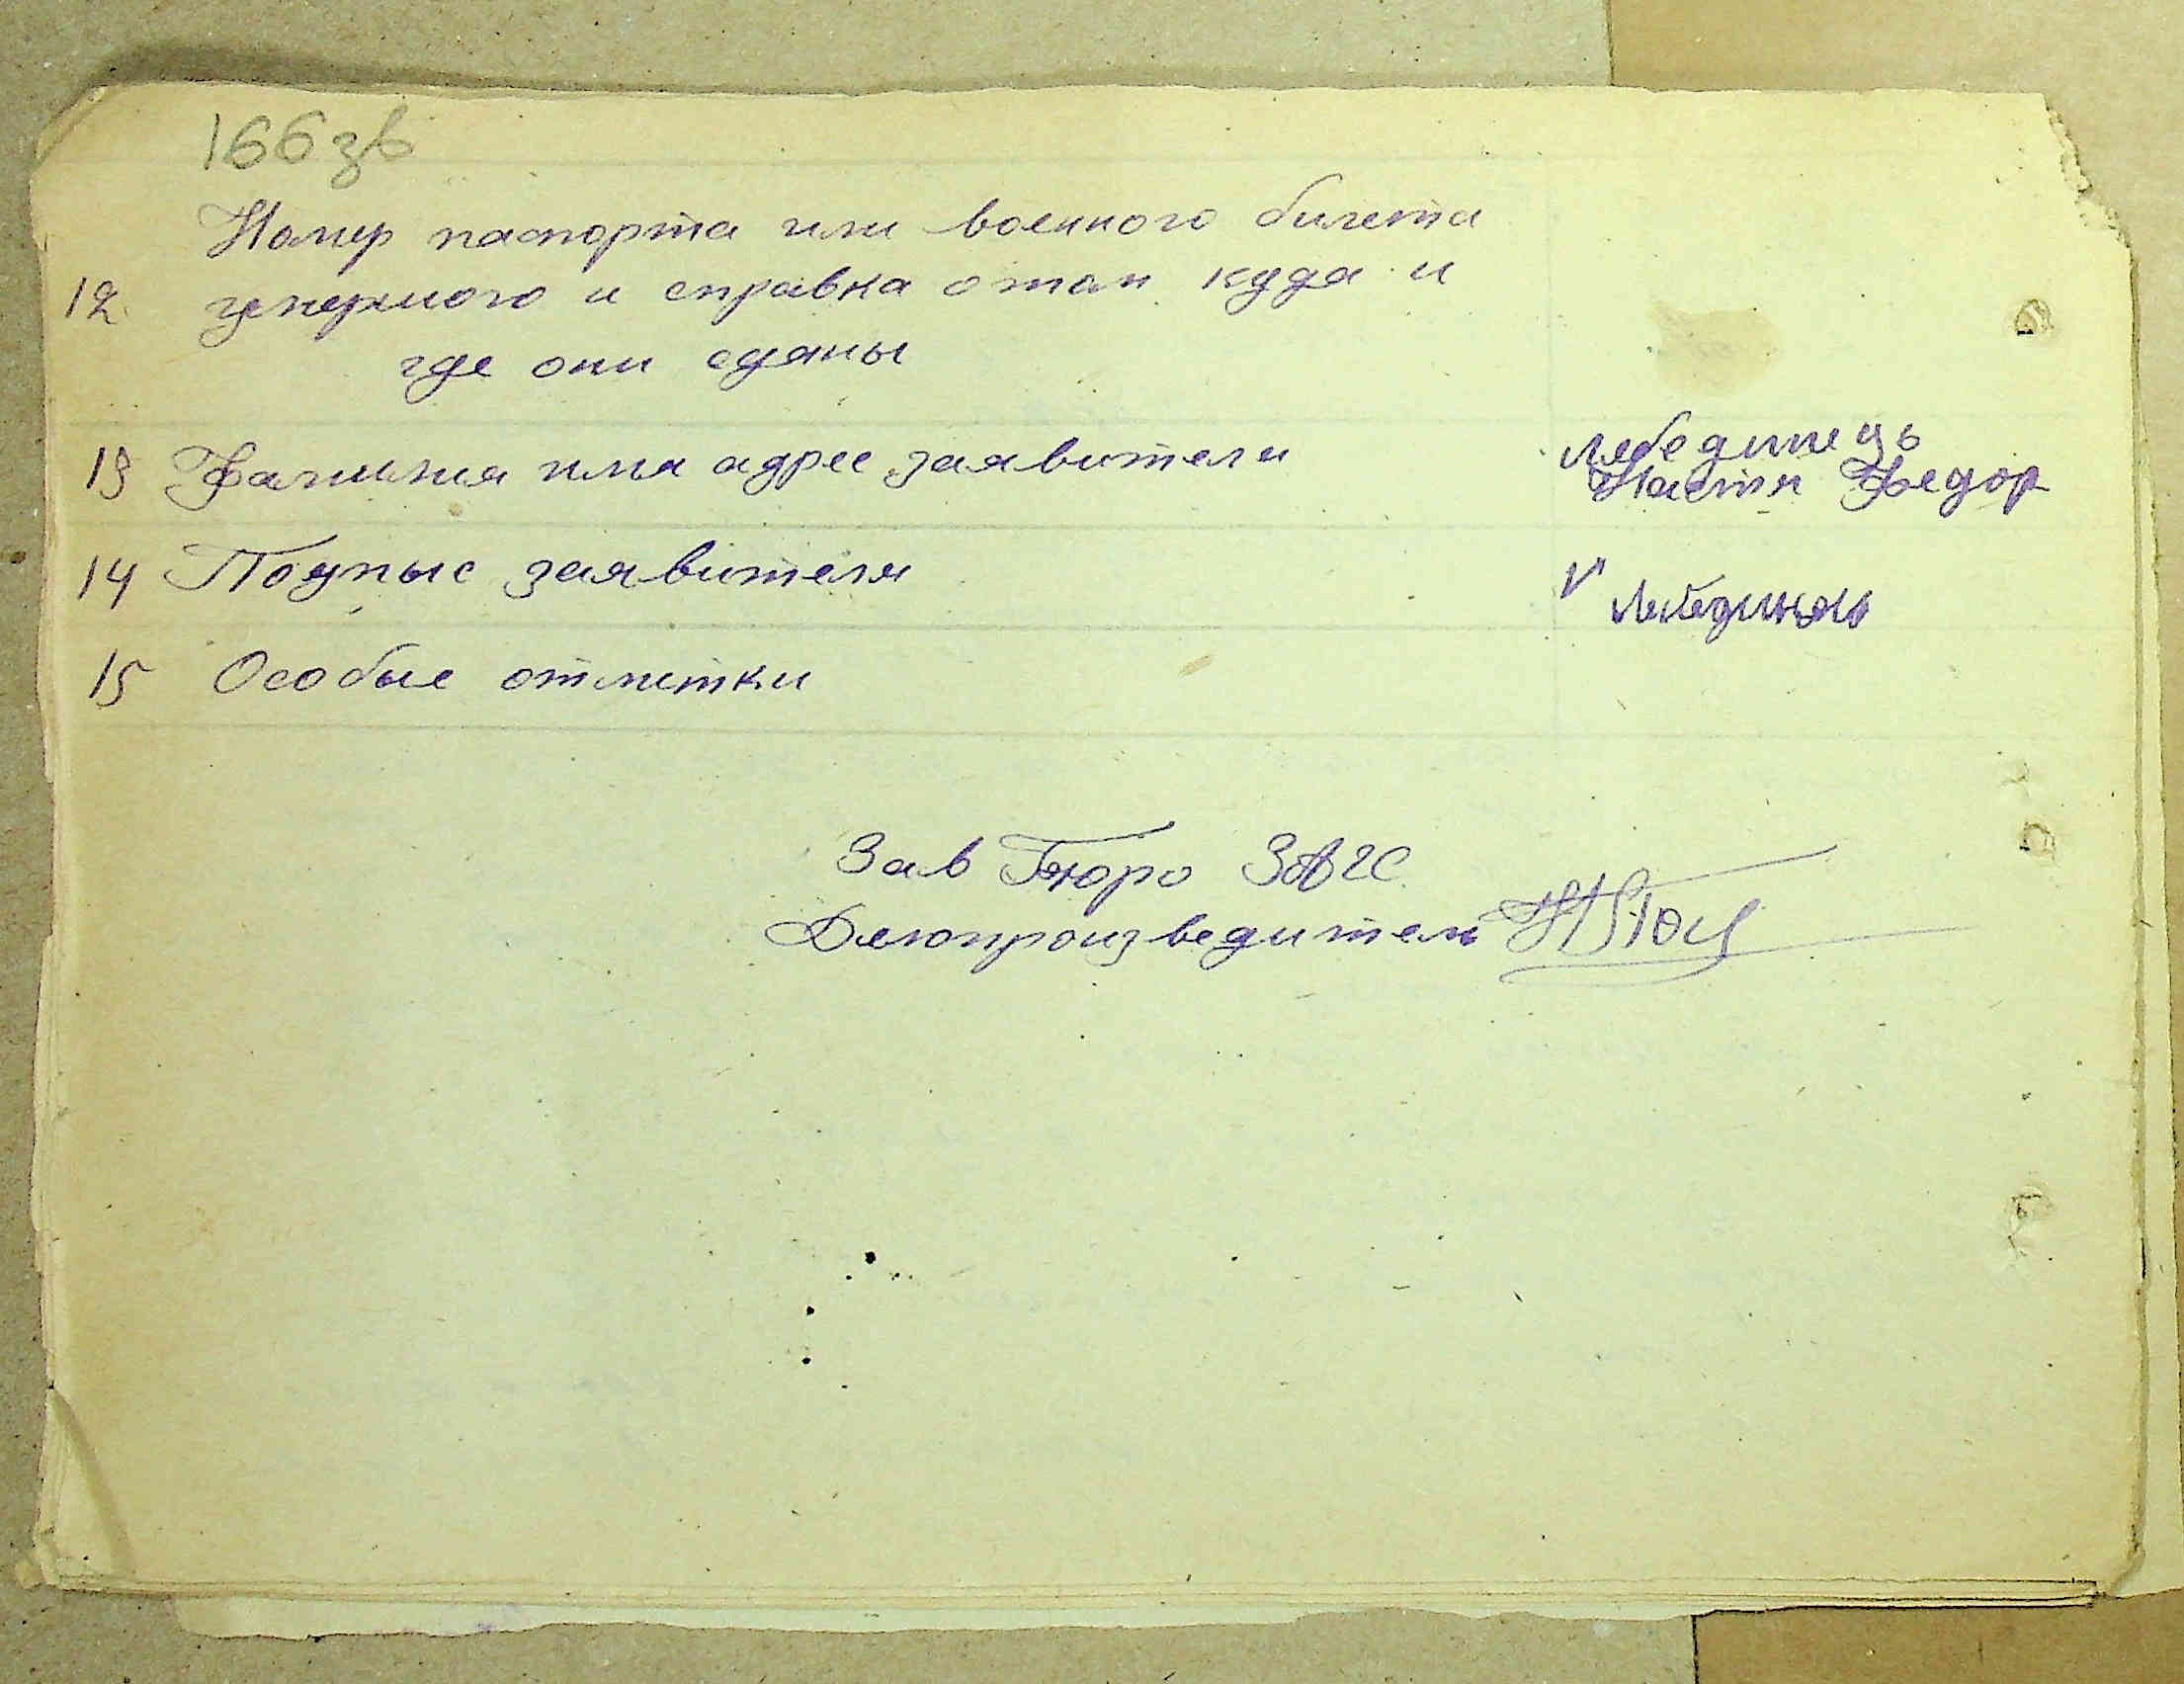 166зв
Номер паспорта или военного билета
12. умермого и справка о том куда и
где они сданы
13 Фамилия имя адрес заявителя
Лебединець
Настя Федор
14 Подпыс заявителя
V Лебединець
15 Особые отметки
Зав Бюро ЗАГС
Делопроизведитель